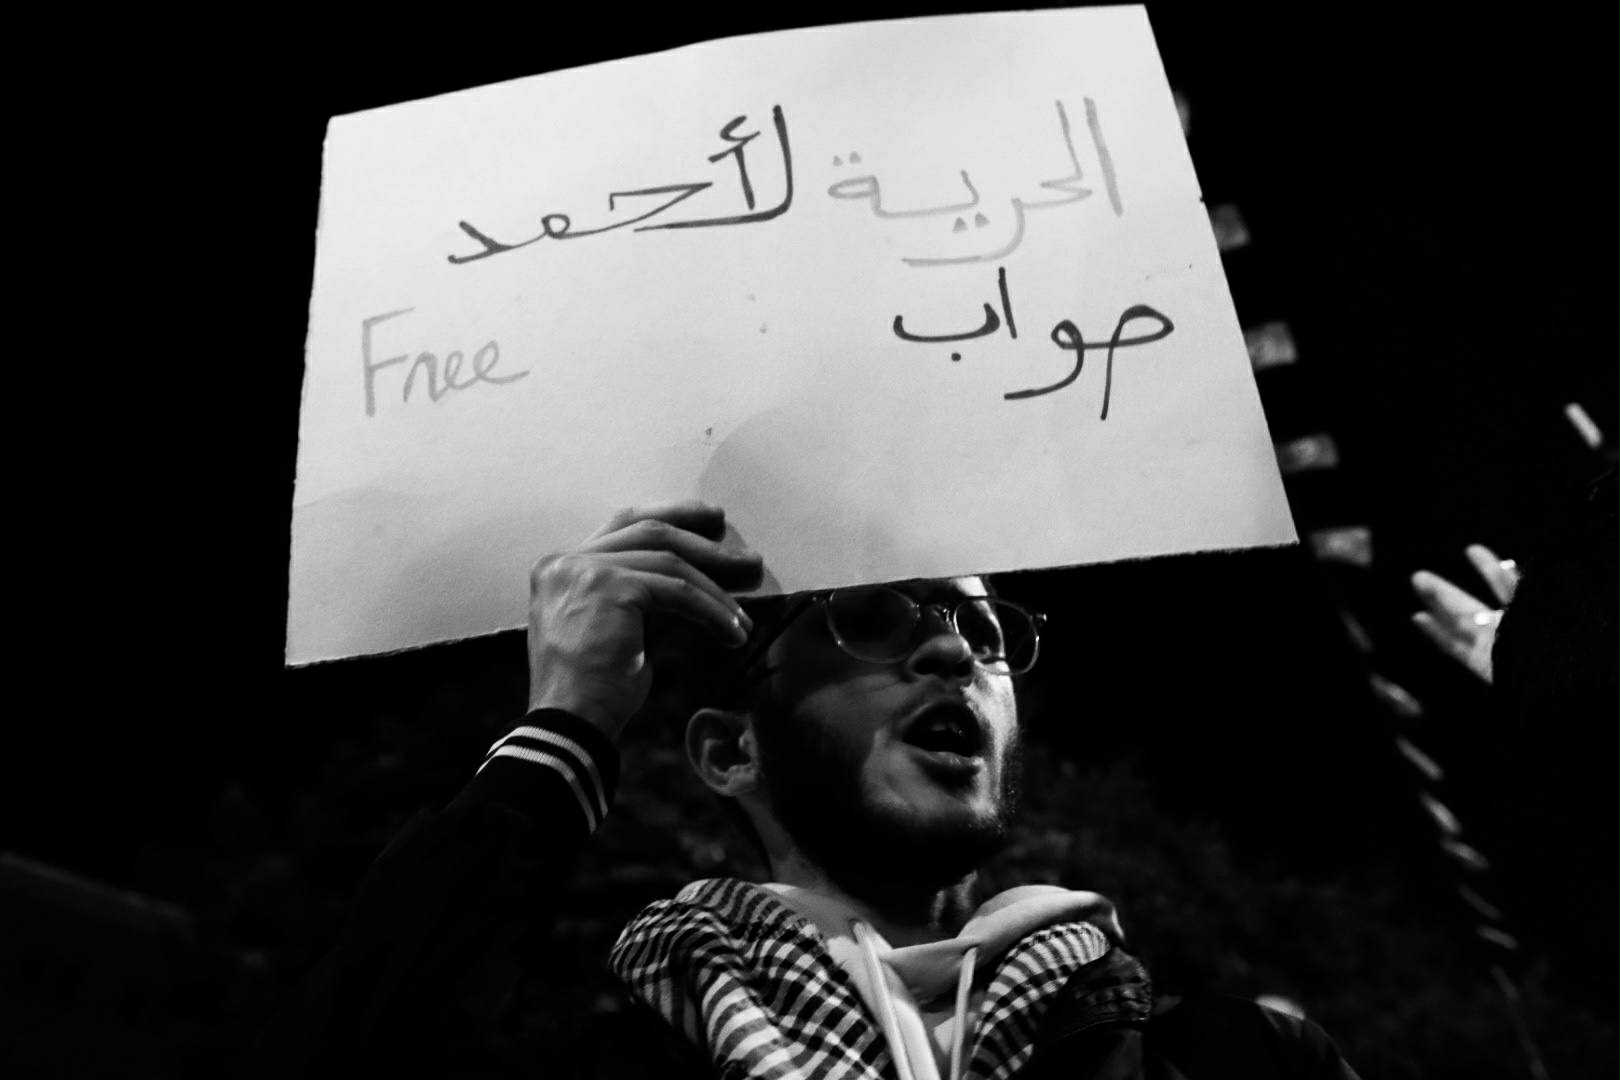 الحرية لأحمد
صواب
Free